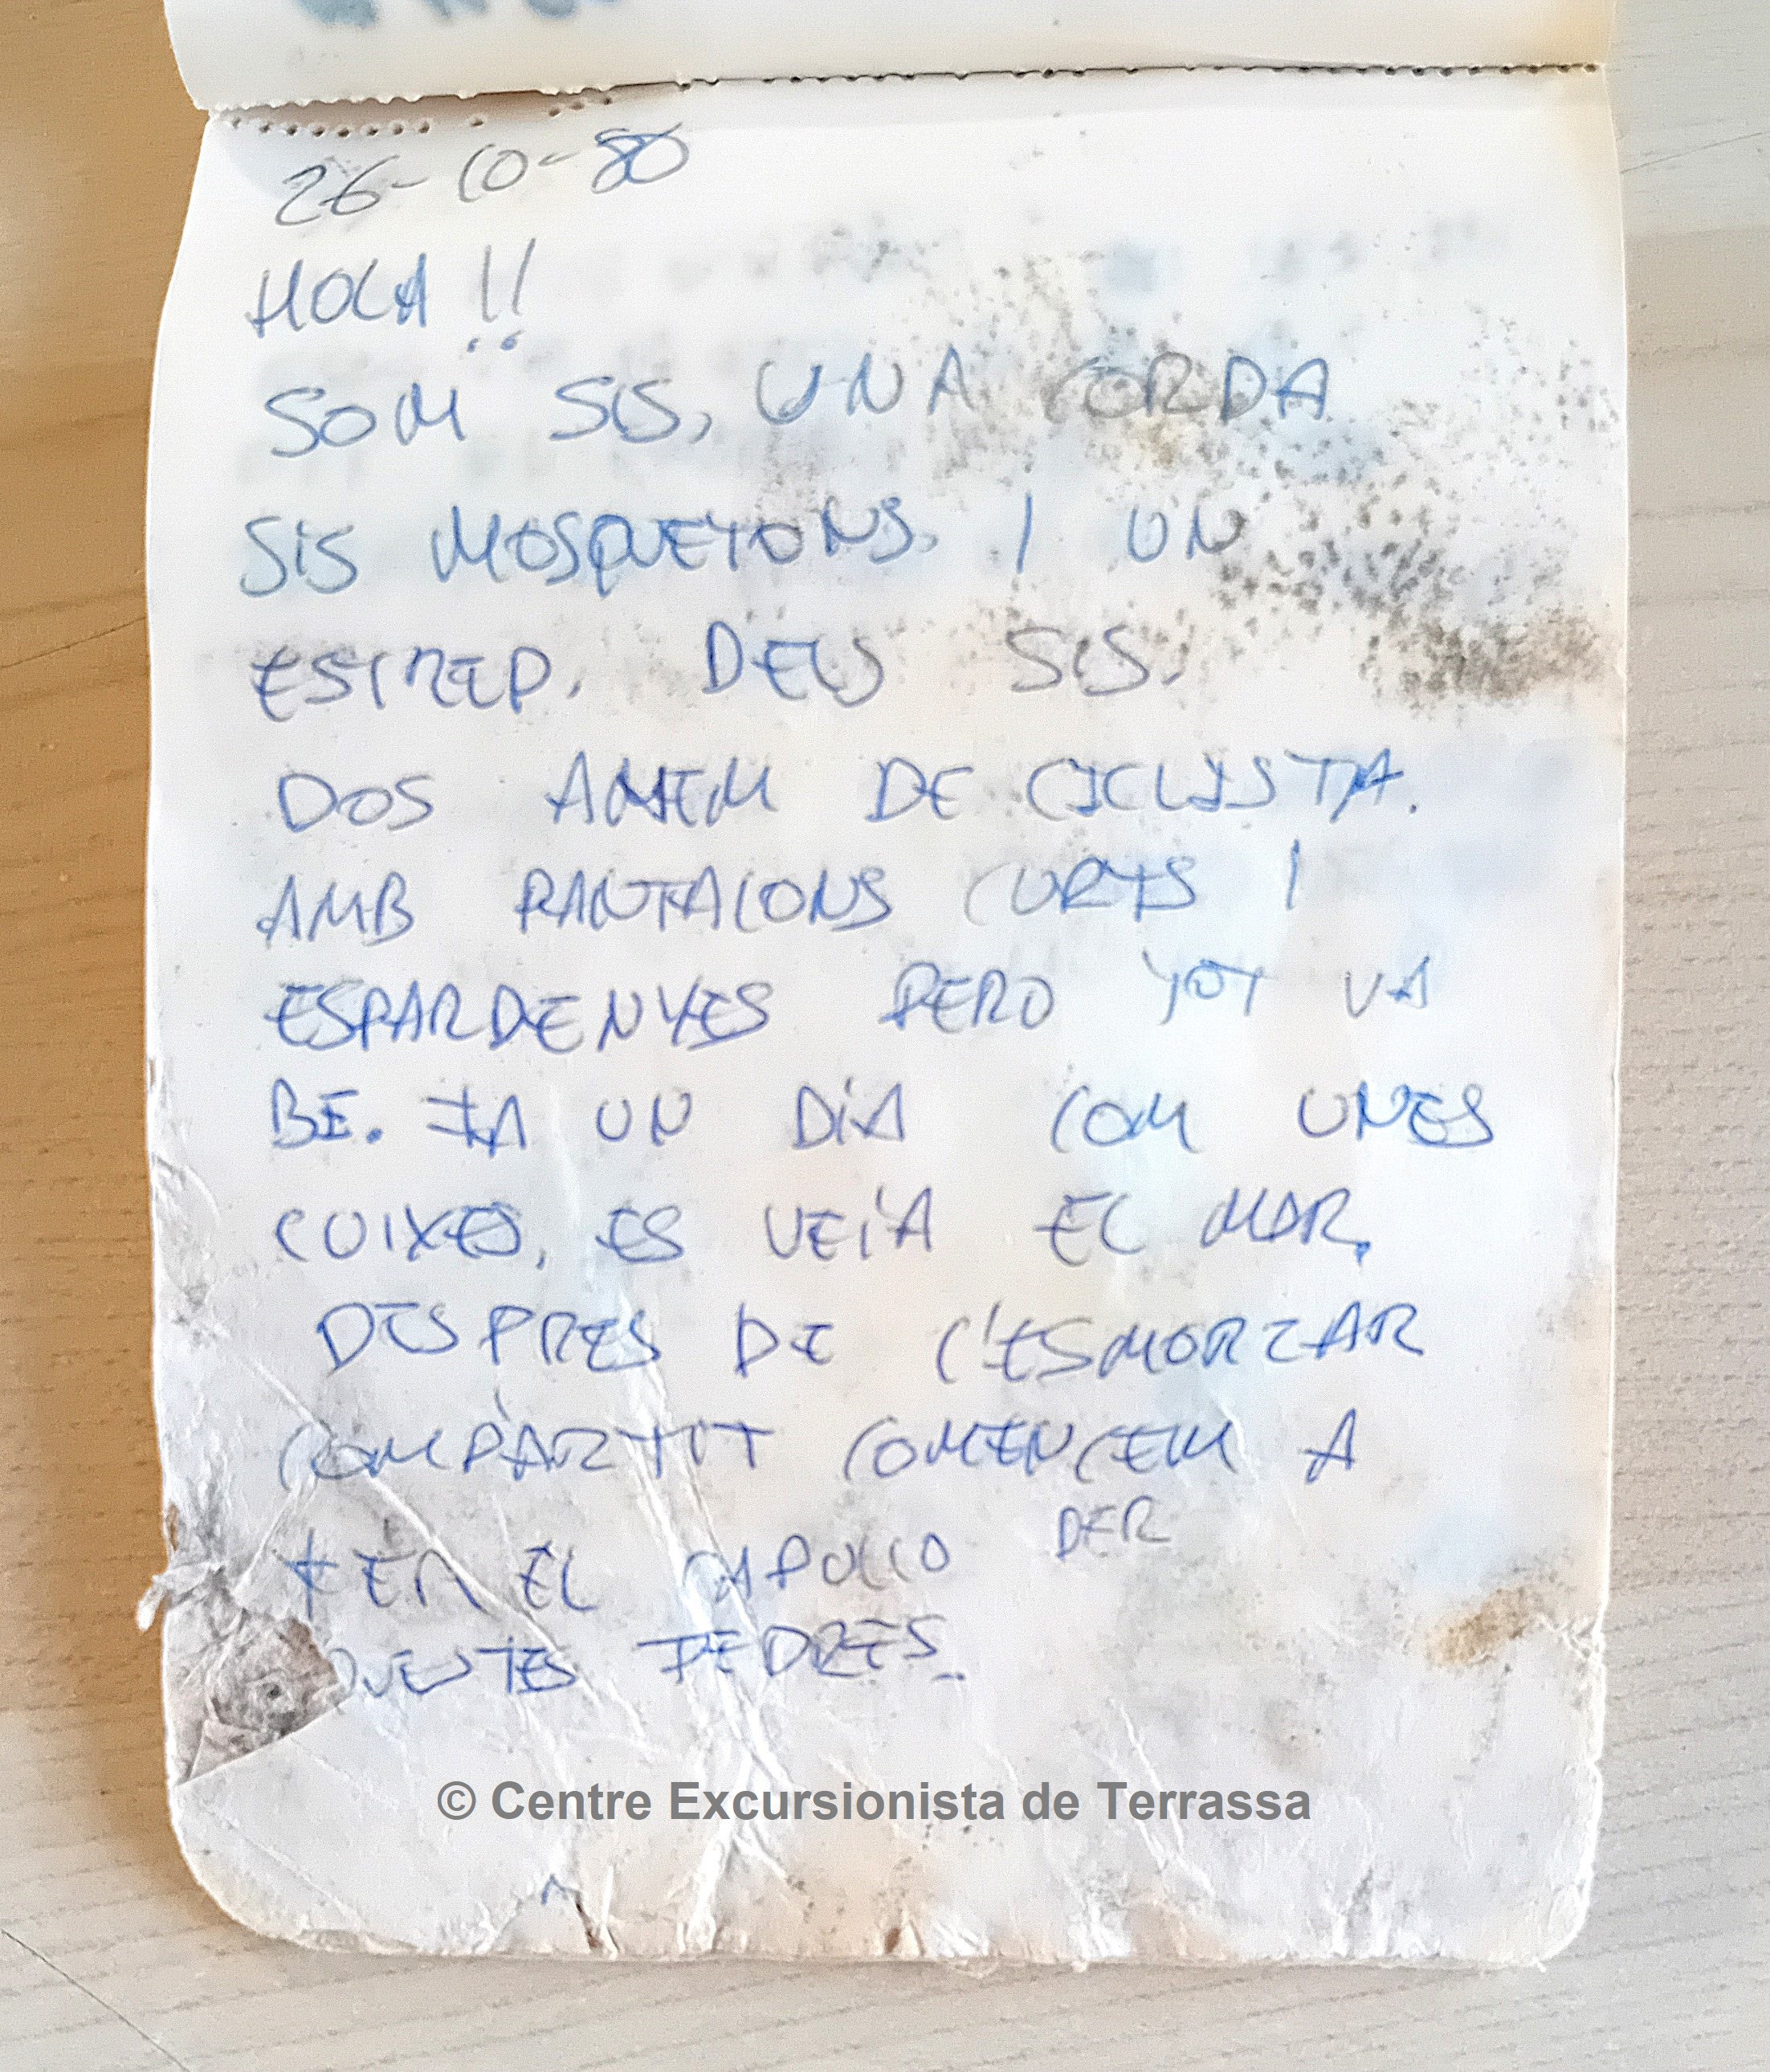 26-10-80
HOLA!!
SOM SIS, UNA CORDA
SIS MOSQUETONS. I UN
ESTREP. DELS SIS.
DOS ANEM DE CICLISTA.
AMB PANTALONS CURTS I
ESPARDENYES PERO TOT VA
BE. FA UN DIA COM UNES
CUIXES, ES VEIA EL MAR.
DESPRES DE L'ESMORZAR
COMPARTIT COMENCEM A
FER EL CAPULLO PER
AQUESTES PEDRES..
© Centre Excursionista de Terrassa